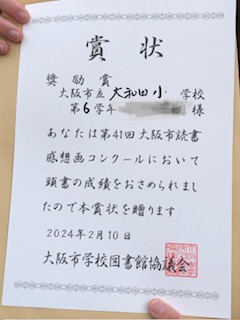 賞状
奨励賞
大阪市立 大和田小 学校
第6学年 様
あなたは第41回大阪市読書
感想画コンクールにおいて
頭書の成績をおさめられまし
たので本賞状を贈ります
2024年2月10日
大阪市学校図書館協議会